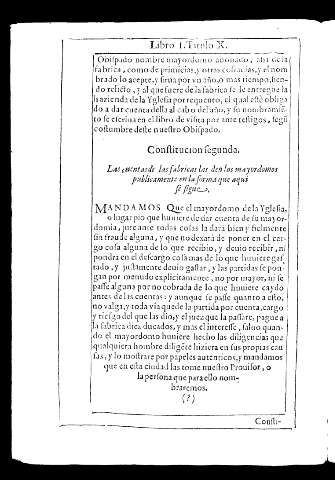 Libro I. Titulo X.
Obispado nombre mayordomo abonado, assi de la
fabrica, como de primicias, y otras cofradias, y el nom
brado lo acepte, y sirua por vn año, o mas tiempo, sien-
do relicto, y al que fuere de la fabrica se le entregue la
hazienda de la Yglesia por requento, el qual estè obliga
do a dar cuenta della al cabo del año, y su nombramiẽ-
to se escriua en el libro de visita por ante testigos, segũ
costumbre deste nuestro Obispado.
Constitucion segunda.
Las cuentas de las fabricas las den los mayordomos
publicamente en la forma que aqui
se sigue.
MANDAMOS Que el mayordomo de la Yglesia,
o lugar pio que huuiere de dar cuenta de su mayor-
domia, jure ante todas cosas la darà bien y fielmente
sin fraude alguna, y que no dexarà de poner en el car-
go cosa alguna de lo que recibio, y deuio recibir, ni
pondra en el descargo cosa mas de lo que huuiere gas
tado, y justamente deuio gastar, y las partidas se pon-
gan por menudo explicitamente, no por mayor, ni se
passe alguna por no cobrada de lo que huuiere caydo
antes de las cuentas: y aunque se passe quanto a esto,
no valga, y toda via quede la partida por cuenta, cargo
y riesgo del que las dio, y el juez que la passare, pague a
la fabrica diez ducados, y mas el interesse, saluo quan-
do el mayordomo huuiere hecho las diligencias que
qualquiera hombre diligẽte hiziera en sus propias cau
sas, y lo mostrare por papeles autenticos, y mandamos
que en esta ciudad las tome nuestro Prouisor, o
la persona que para ello nom-
braremos.
(?)
Consti-